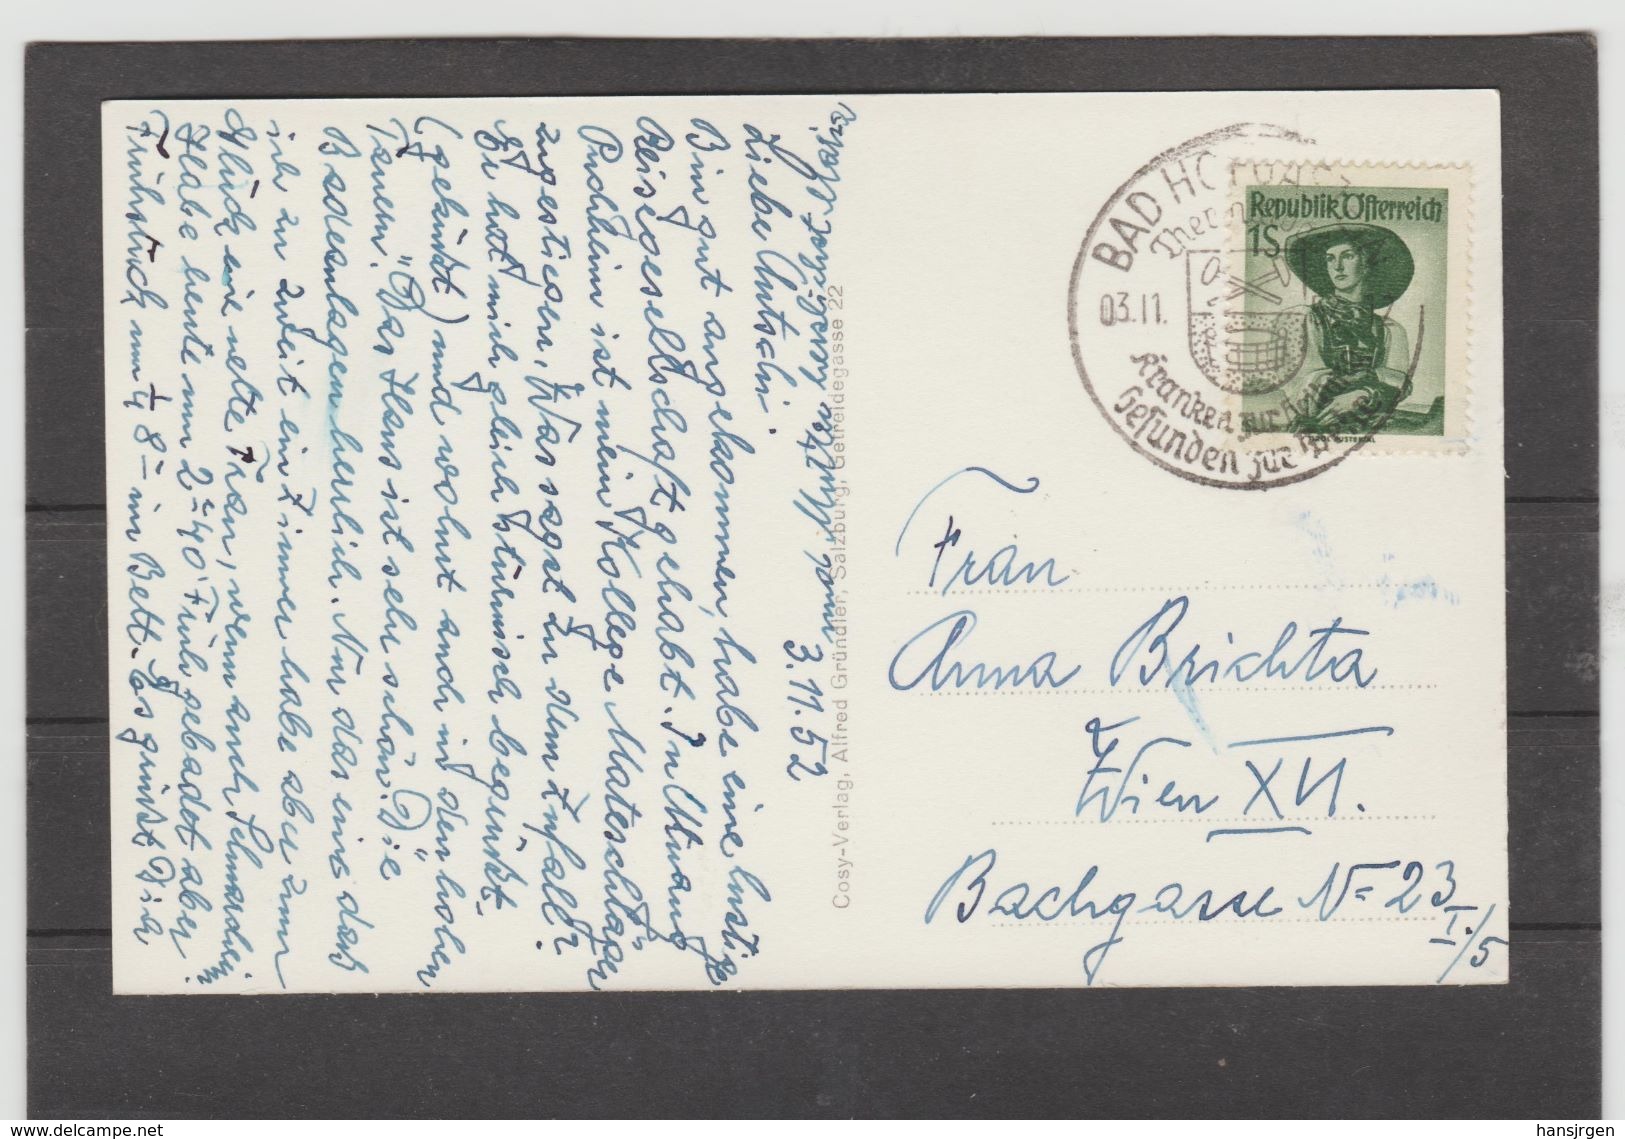 3.11.52
Liebe Antschi.
Bin gut angekommen, habe eine lustige
Reisegesellschaft gehabt. In Attnang
Puchheim ist mein Kollege Mateschläger
zugestiegen, Was sagst zu dem Zufall?
Er hat mich gleich stürmisch begrüßt.
(geküßt) und wohnt auch in der hohen
Tauern. "Das Haus ist sehr schön. Die
Badeanlagen herrlich. Nur das eins daß
ich zu zweit ein Zimmer habe aber zum
Glück eine nette Frau, wenn auch
Habe heute um 2 40 Früh gebadet aber
Frühstück um ¼ 8 - im Bett. Es grüßt Dich
und
Cosy-Verlag, Alfred Gründler, Salzburg, Getreidegasse 22
BAD HOFGAST
03.11.
Kranken zur
Gesunden zur
Republik Österreich
1S
TIROL PUSTERTAL
Frau
Anna Brichta
Wien XVI.
Bachgasse No 23
I./5
www.delcampe.net
hansjrgen